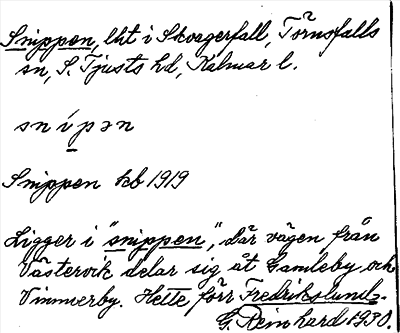 Snippen, lht i Skogerfall, Törnsfalls
sn, S. Tjusts hd, Kalmar l.
snípən
Snippen kb 1919
Ligger i "snippen", där vägen från
Västervik delar sig åt Gamleby och
Vimmerby. Hette förr Fredrikslund.
G. Reinhard 1930.